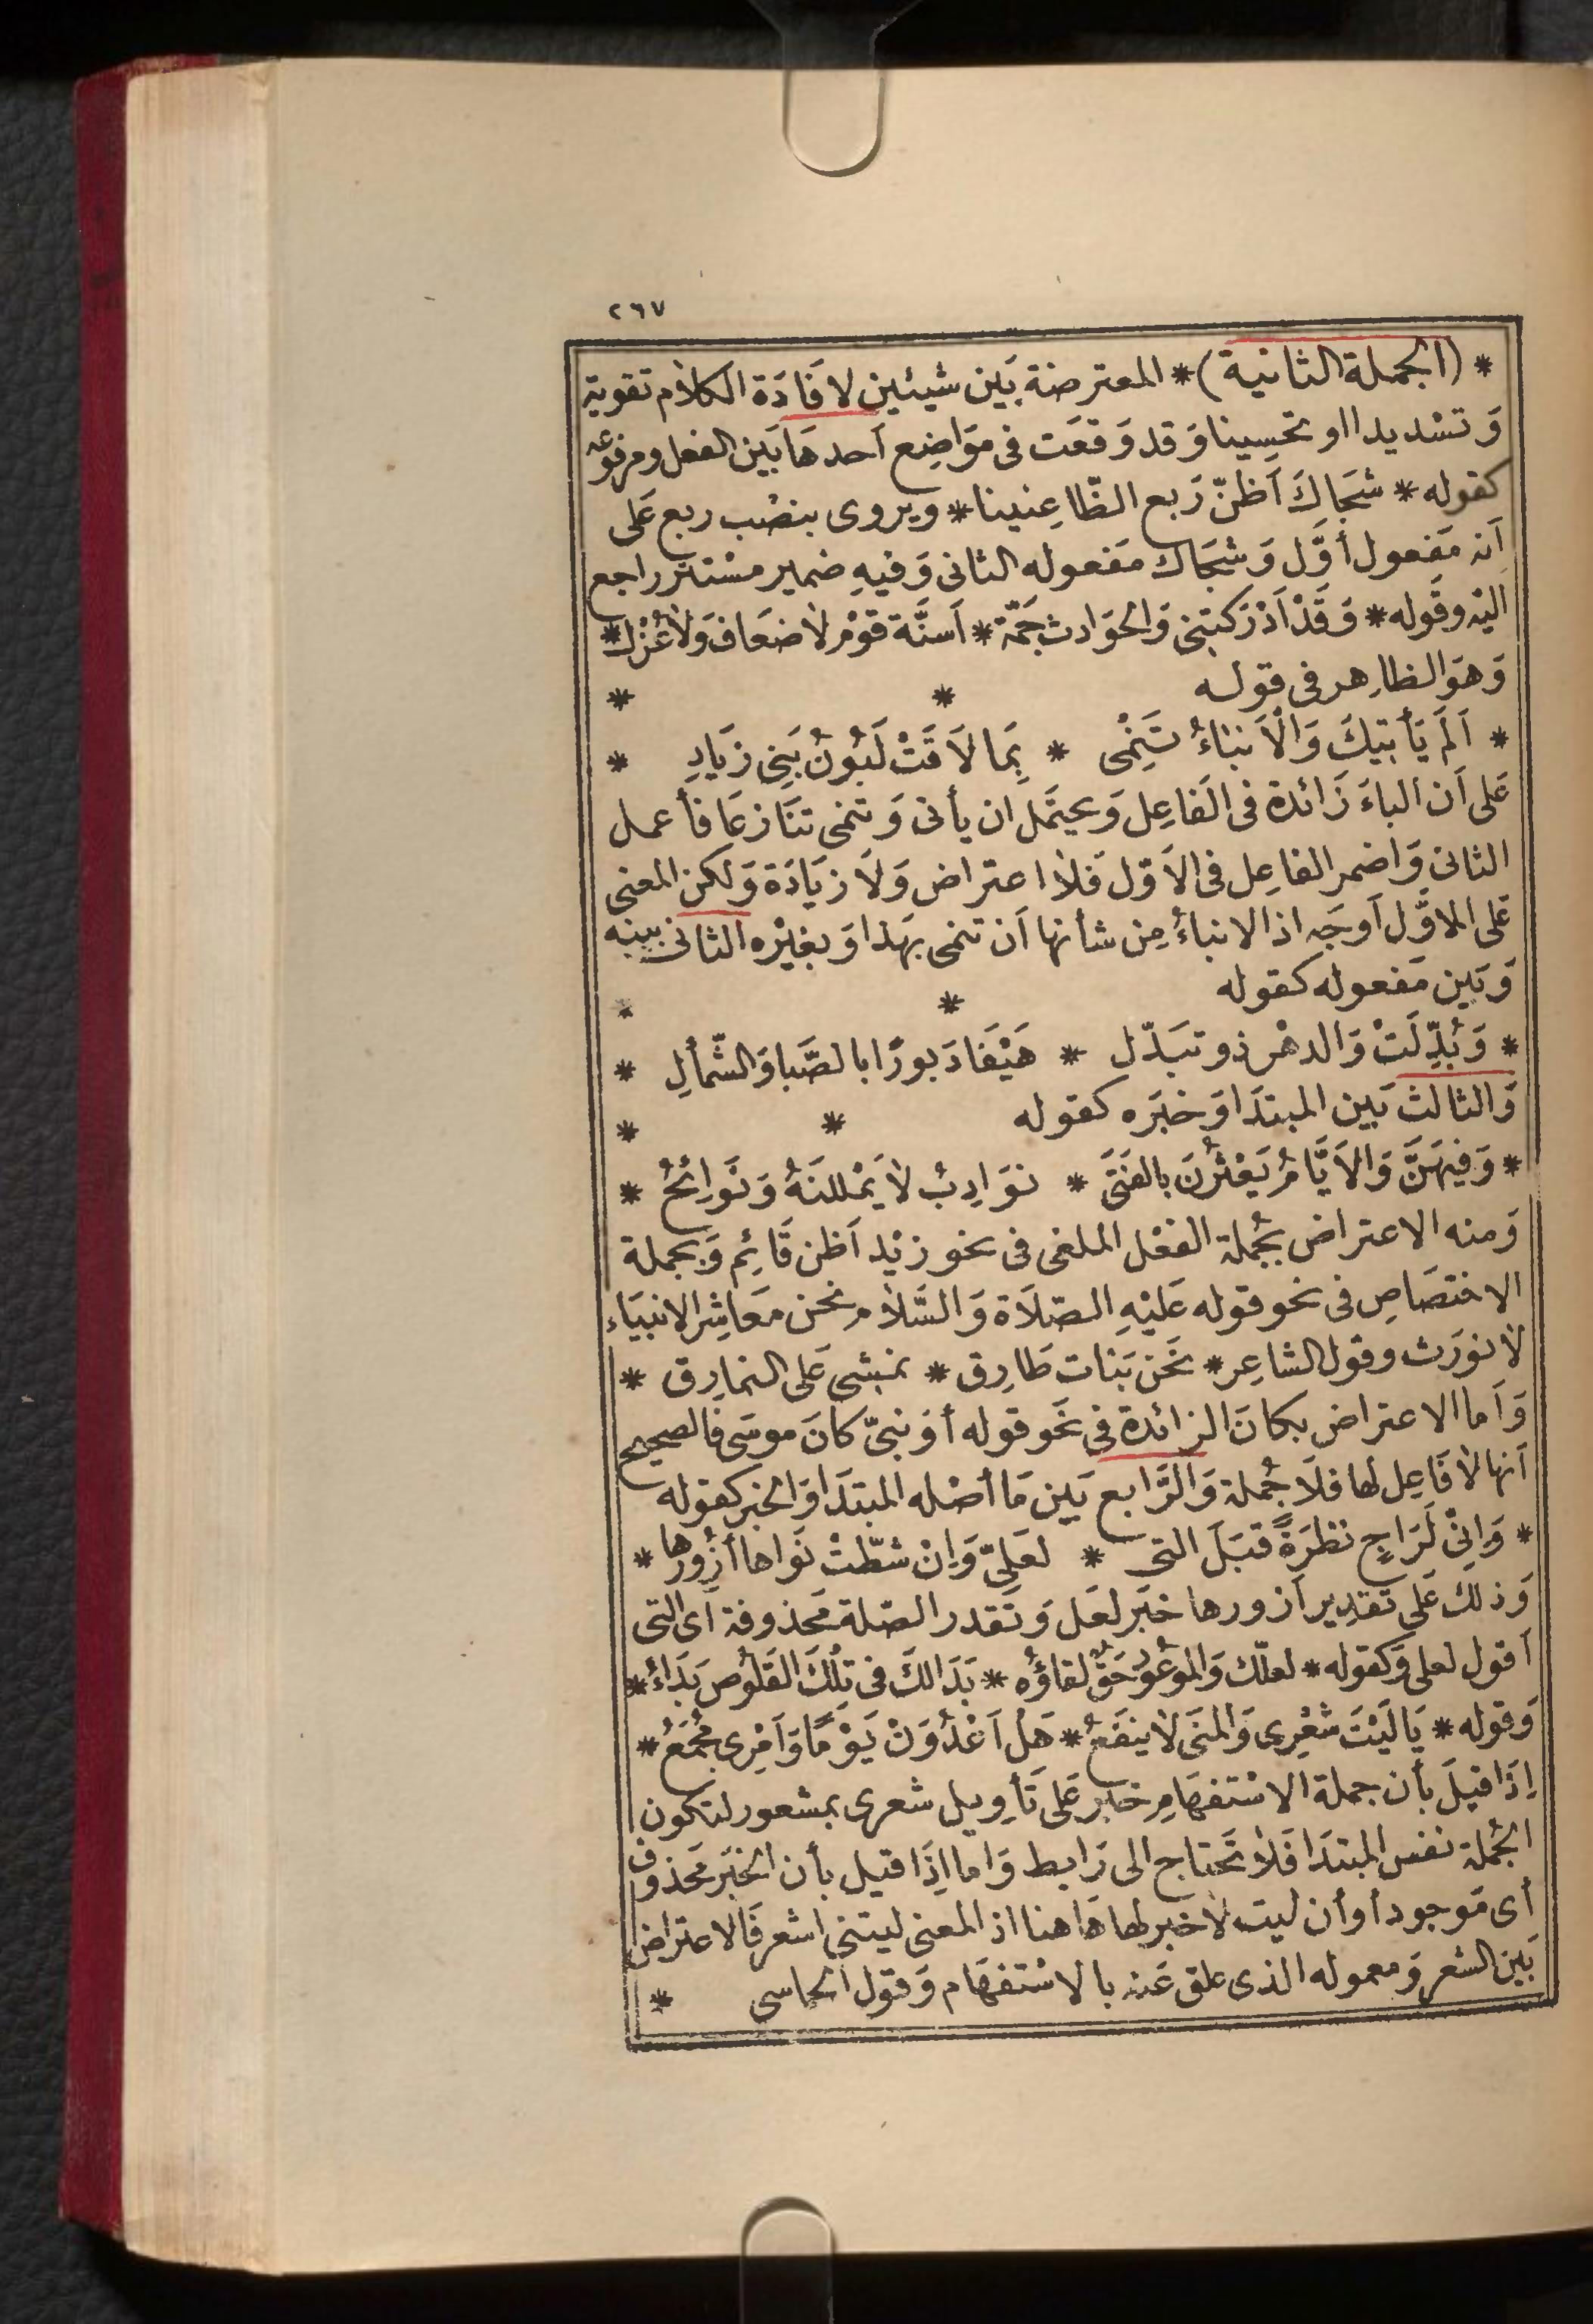 ٢٦٧
* (الجملة الثانية) * المعترضة بَين شيئين لافَادَة الكلام تقوية
وَتشديدا او تحسِينا وَقد وَقعَت فى موَاضِع أحدهَا بَين الفعل ومرفوعه
كقوله * شجَاكَ أظنّ رَبع الظّاعِنينا * ويروى بنصْب ربع عَلى
أنه مَفعول أوَّل وَشجَاك مَفعوله الثانى وَفيهِ ضمير مسْتتر راجع
اليْه وقَوله * وَقَدْ أدْرَكتنِى وَالحوَادث جَمّة * أسنَّة قوْم لاضعَاف وَلاعُزْل *
وَهوَ الظاهِر فى قوله * *
* أَلَمْ يَأْتيكَ وَالْأَنباءُ تَنْمِى * بِمَا لَاقَتْ لَبُونُ بَنِى زيَادِ *
عَلى أن الباءَ زَائدة فى الفَاعِل وَيحتمَل ان يأتى وَتنمى تنَازعَا فأعمل
الثانى وَاضمر الفاعِل فى الأوّل فَلا اعتراض وَلَا زيَادَة وَلكن المعنى
عَلى الاوَّل أوجَه اذ الانباءُ مِن شأنها أن تنمى بهَذا وَبغيْره الثانى بينه
وَبَين مَفعوله كقوله * *
* وَبُدِّلَتْ وَالدهْر ذو تبَدّل * هَيْفَا دَبورًا بالصَّبا وَالشّمْألِ *
وَالثالث بَين المبتدَا وَخبَره كقوله * *
* وَفِيهَنَّ وَالأيَّامُ يَعْثُرْنَ بالفَتَى * نوَادِبُ لايَمْللنَهُ وَنَوائِحُ *
وَمنه الاعتراض بجُملة الفعْل الملغى فى نحو زيْد أظن قَائِم وَبجملة
الاختصَاصِ فى نحو قوله عَليْهِ الصّلَاة وَالسَّلام نحن مَعَاشِر الانبيَاء
لا نورَث وقول الشاعِر * نحَن بَنات طَارِق * نمشى عَلى النمارِق *
وَأما الاعتراض بكانَ الزائدة فى نحَو قوله أوْ نبىّ كانَ موسَى فالصحيح
أنها لا فَاعِل لها فلَا جُملة وَالرَّابع بَين مَا أصْله المبتَدَا وَالخبر كقوله
* وَإِنِّى لَرَاجٍ نظرَةً قبَلَ التى * لعَلِىّ وَإِنْ شطّتْ نَواها أزُورُها *
وَذلك عَلى تقدِير أزورها خبَر لعَل وَتَقدر الصّلة مَحذوفة أى التى
أقول لعلى وَكقوله * لعلّك وَالموْعُودُ حَقٌّ لقاؤُه * بَدَا لكَ فى تِلْكَ القَلُوص بَدَاءُ *
وَقوله * يَالَيْتَ شعْرِى وَالمنَى لاينفَعُ * هَلْ أغْدُوَنْ يَوْمًا وَأمْرِى مُجْمَعُ *
إذَا قيلَ بأن جملة الاسْتفهَامِ خبر عَلى تَأويل شعرى بمشعور لتكون
الجُملة نفس المبتَدَا فَلا تحتاج الى رَابط وَاما إذَا قيل بأن الخبَر مَحذوف
أى مَوجود أوأن ليت لا خَبر لها هَاهنا اذ المعنى ليتنى اشعر فَالاعتراض
بَين الشعر وَمعموله الذى علق عَنه بالاسْتفهَام وَقول الحماسى *